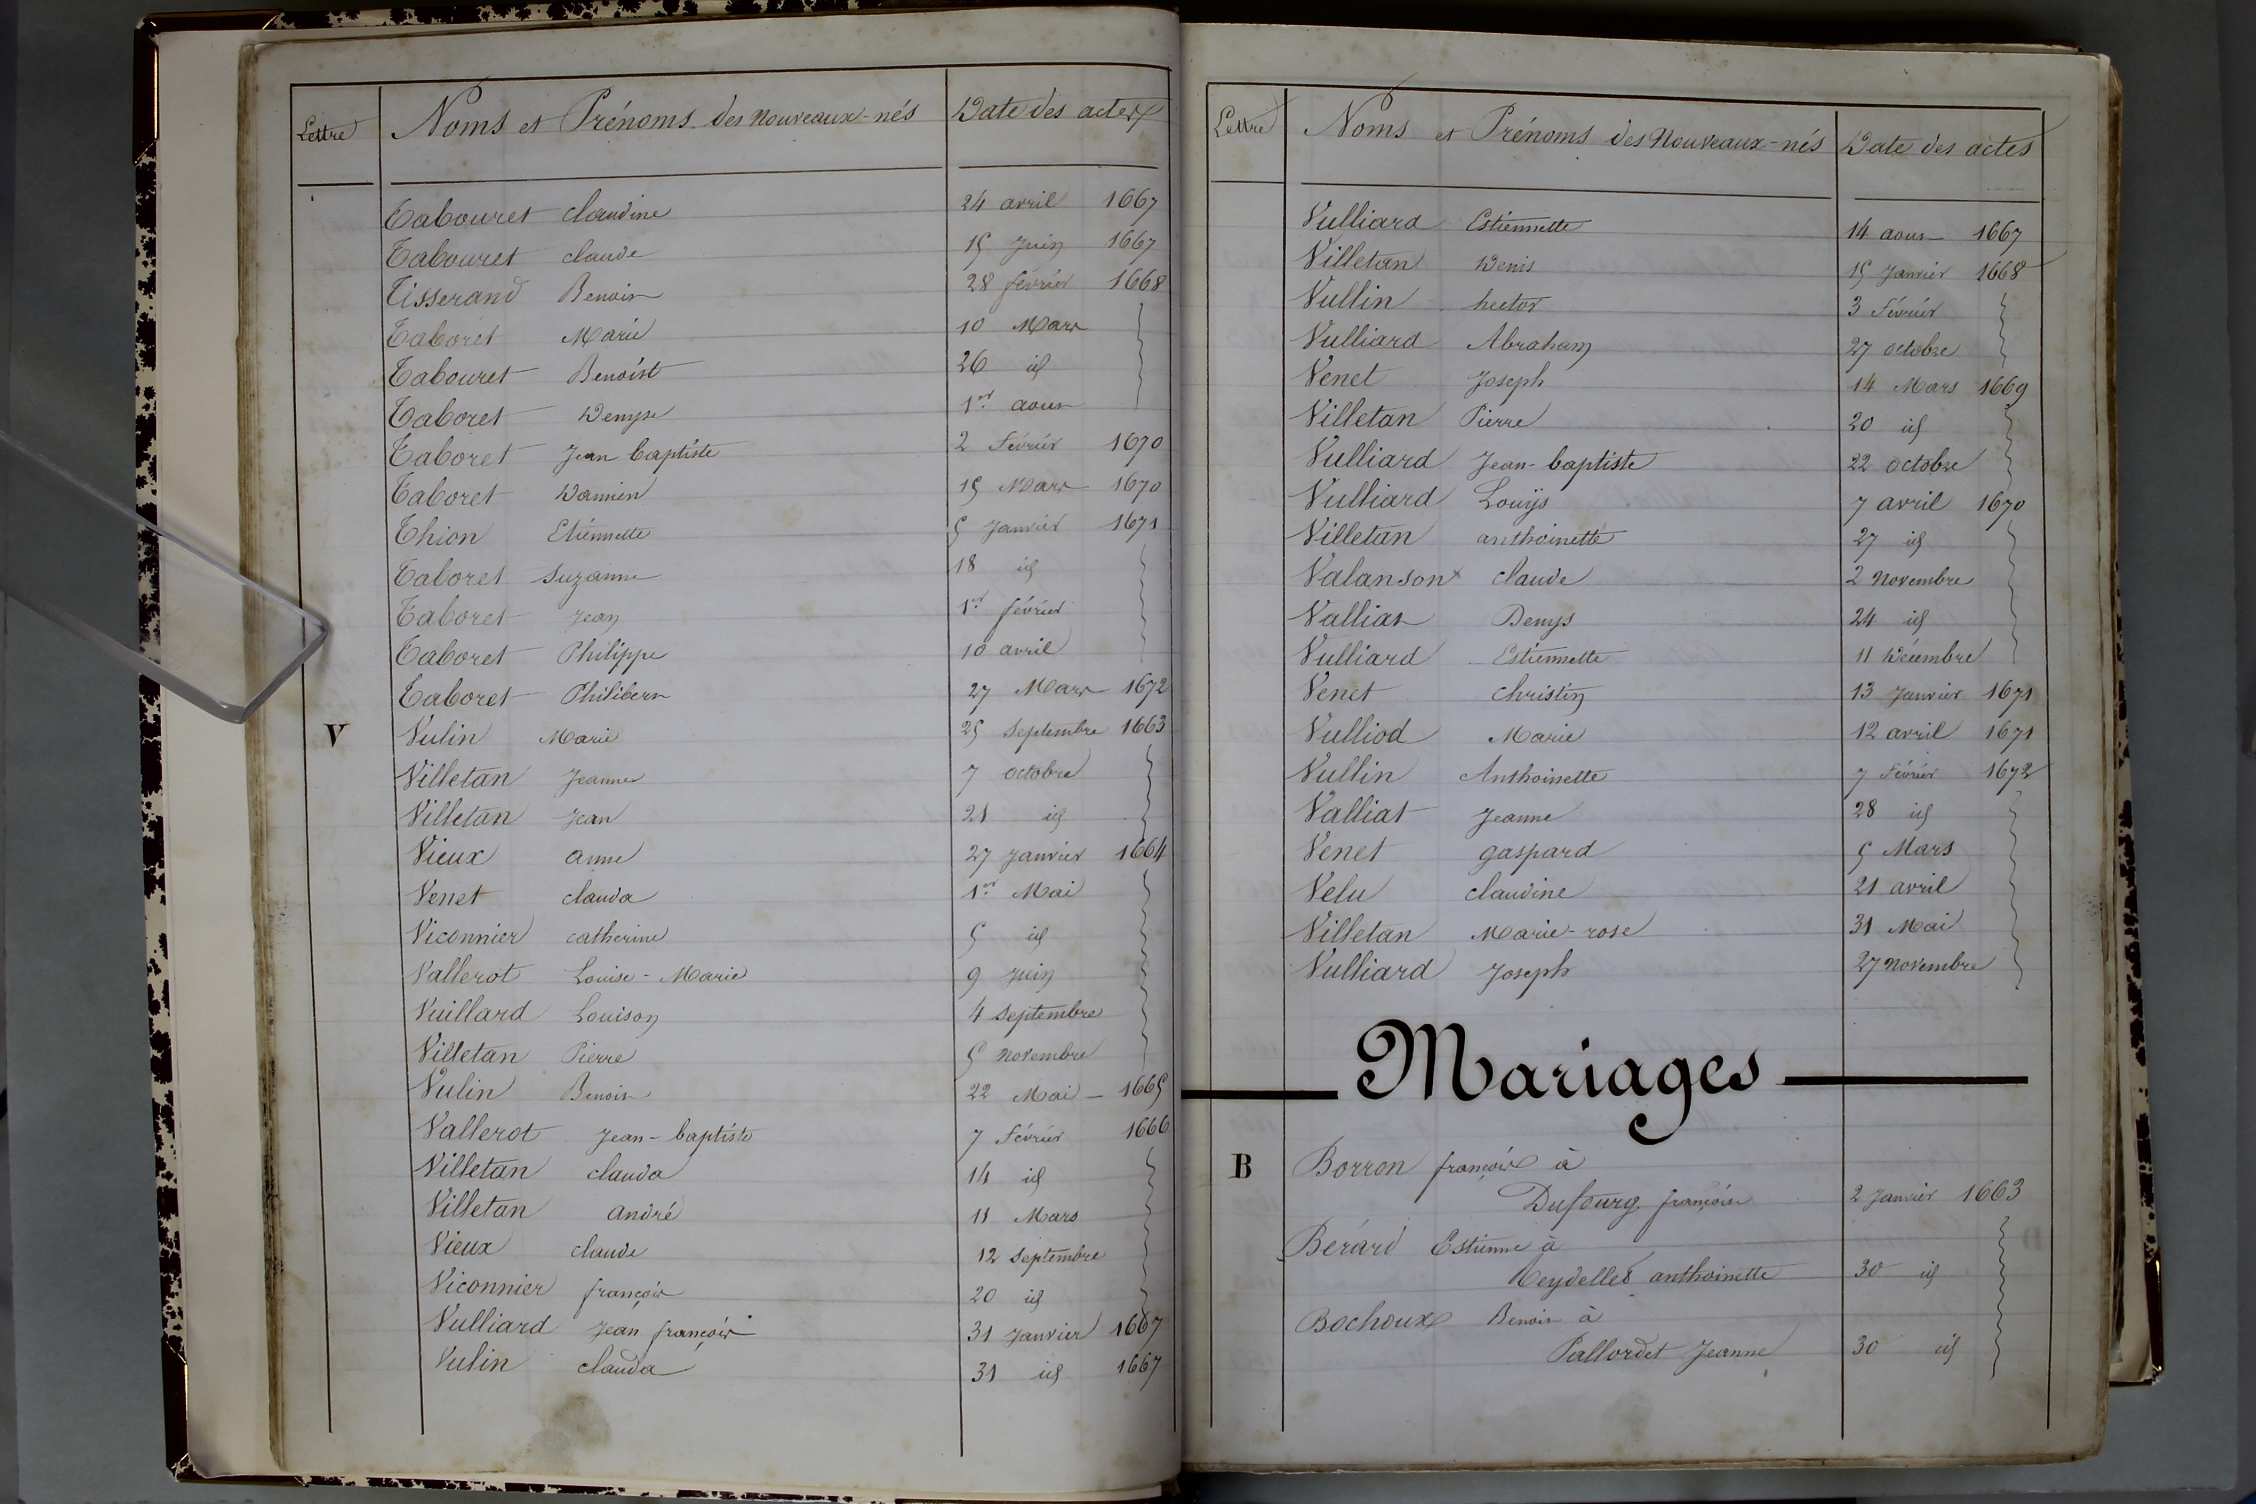 Lettre Noms et Prénoms des Nouveaux-nés Date des actes
Tabouret claudine 24 avril 1667
Tabouret claude 15 Juin 1667
Tisserand Benoit 28 février 1668
Taboret Marie 10 Mars
Tabouret Benoist 26 id
Taboret Denyse 1er aout
Taboret Jean baptiste 2 Février 1670
Taboret Damien 15 Mars 1670
Thion Etiennette 5 Janvier 1671
Taboret Suzanne 18 id
Taboret Jean 1er février
Taboret Philippe 10 avril
Taboret Philibert 27 Mars 1672
V Vulin Marie 25 Septembre 1663
Villetan Jeanne 7 octobre
Villetan Jean 21 id
Vieux anne 27 Janvier 1664
Venet clauda 1er Mai
Viconnier catherine 5 id
Vallerot Louise-Marie 9 Juin
Vuillard Louison 4 Septembre
Villetan Pierre 5 Novembre
Vulin Benoit 22 Mai - 1665
Vallerot Jean-baptiste 7 Février 1666
Villetan clauda 14 id
Villetan andré 11 Mars
Vieux claude 12 Septembre
Viconnier françois 20 id
Vulliard Jean françois 31 Janvier 1667
Vulin clauda 31 id 1667
Lettre Noms et Prénoms des Nouveaux-nés Date des actes
Vulliard Estiennette 14 aout 1667
Villetan Denis 15 Janvier 1668
Vullin hector 3 Février
Vulliard Abraham 27 octobre
Venet Joseph 14 Mars 1669
Villetan Pierre 20 id
Vulliard Jean-baptiste 22 octobre
Vulliard Louys 7 avril 1670
Villetan anthoinette 27 id
Valanson claude 2 Novembre
Valliat Denys 24 id
Vulliard Estiennette 11 Décembre
Venet christin 13 Janvier 1671
Vulliod Marie 12 avril 1671
Vullin Anthoinette 7 Février 1672
Valliat Jeanne 28 id
Venet gaspard 5 Mars
Velu claudine 21 avril
Villetan Marie-rose 31 Mai
Vulliard Joseph 27 Novembre
Mariages
B Borron françois à
Dufourg 2 Janvier 1663
Bérard Estienne à
anthoinette 30 id
Bochoux Benoit à
Pallordet Jeanne 30 id